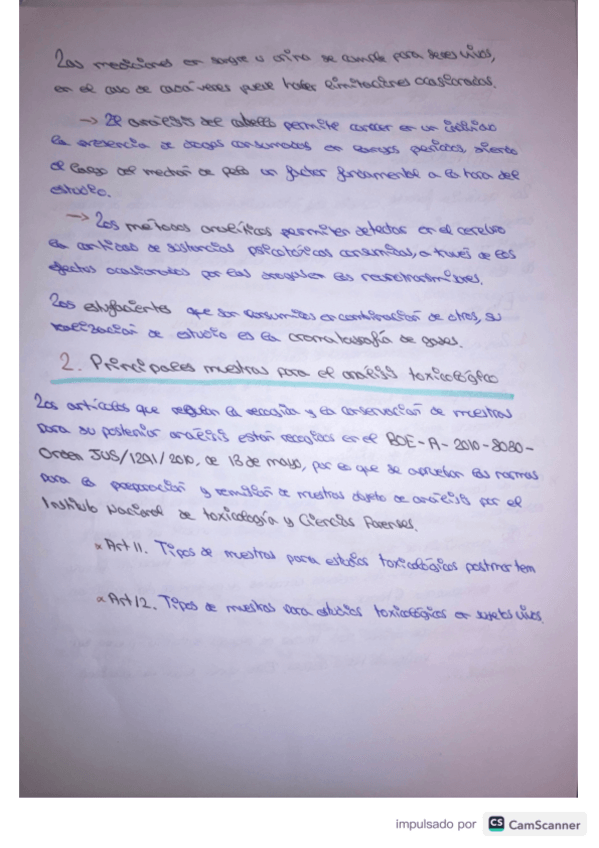 Las mediciones en sangre u orina se cumple para seres vivos,
en el caso de cadáveres puede haber limitaciones ocasionadas.
→ El análisis del cabello permite conocer en un individuo
la presencia de drogas consumidas en largos periodos, siendo
el largo del mechón de pelo un factor fundamental a la hora del
estudio.
→ Los métodos analíticos permiten detectar en el cerebro
la cantidad de sustancias psicotrópicas consumidas, a través de los
efectos ocasionados por las drogas en los neurotransmisores.
Los estupefacientes que son consumidos en combinación de otros, su
realización de estudio es la cromatografía de gases.
2. Principales muestras para el análisis toxicológico
Los artículos que regulan la recogida y la conservación de muestras
para su posterior análisis están recogidos en el BOE-A-2010-8030-
Orden JUS/1291/2010, de 13 de mayo, por la que se aprueban las normas
para la preparación y remisión de muestras objeto de análisis por el
Instituto Nacional de toxicología y Ciencias Forenses.
* Art 11. Tipos de muestras para estudios toxicológicos postmortem
* Art 12. Tipos de muestras para estudios toxicológicos en sujetos vivos.
impulsado por CS CamScanner